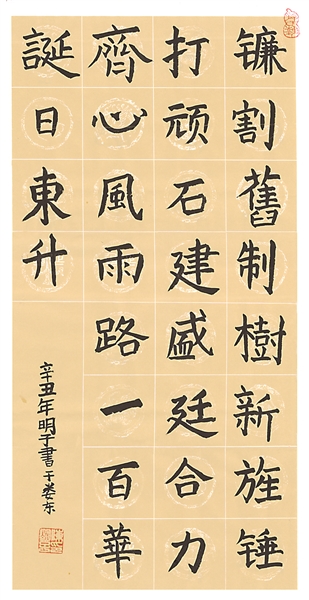 镰割舊制樹新旌锤
打顽石建盛廷合力
齊心風雨路一百華
誕日東升
辛丑年明子書于娄东